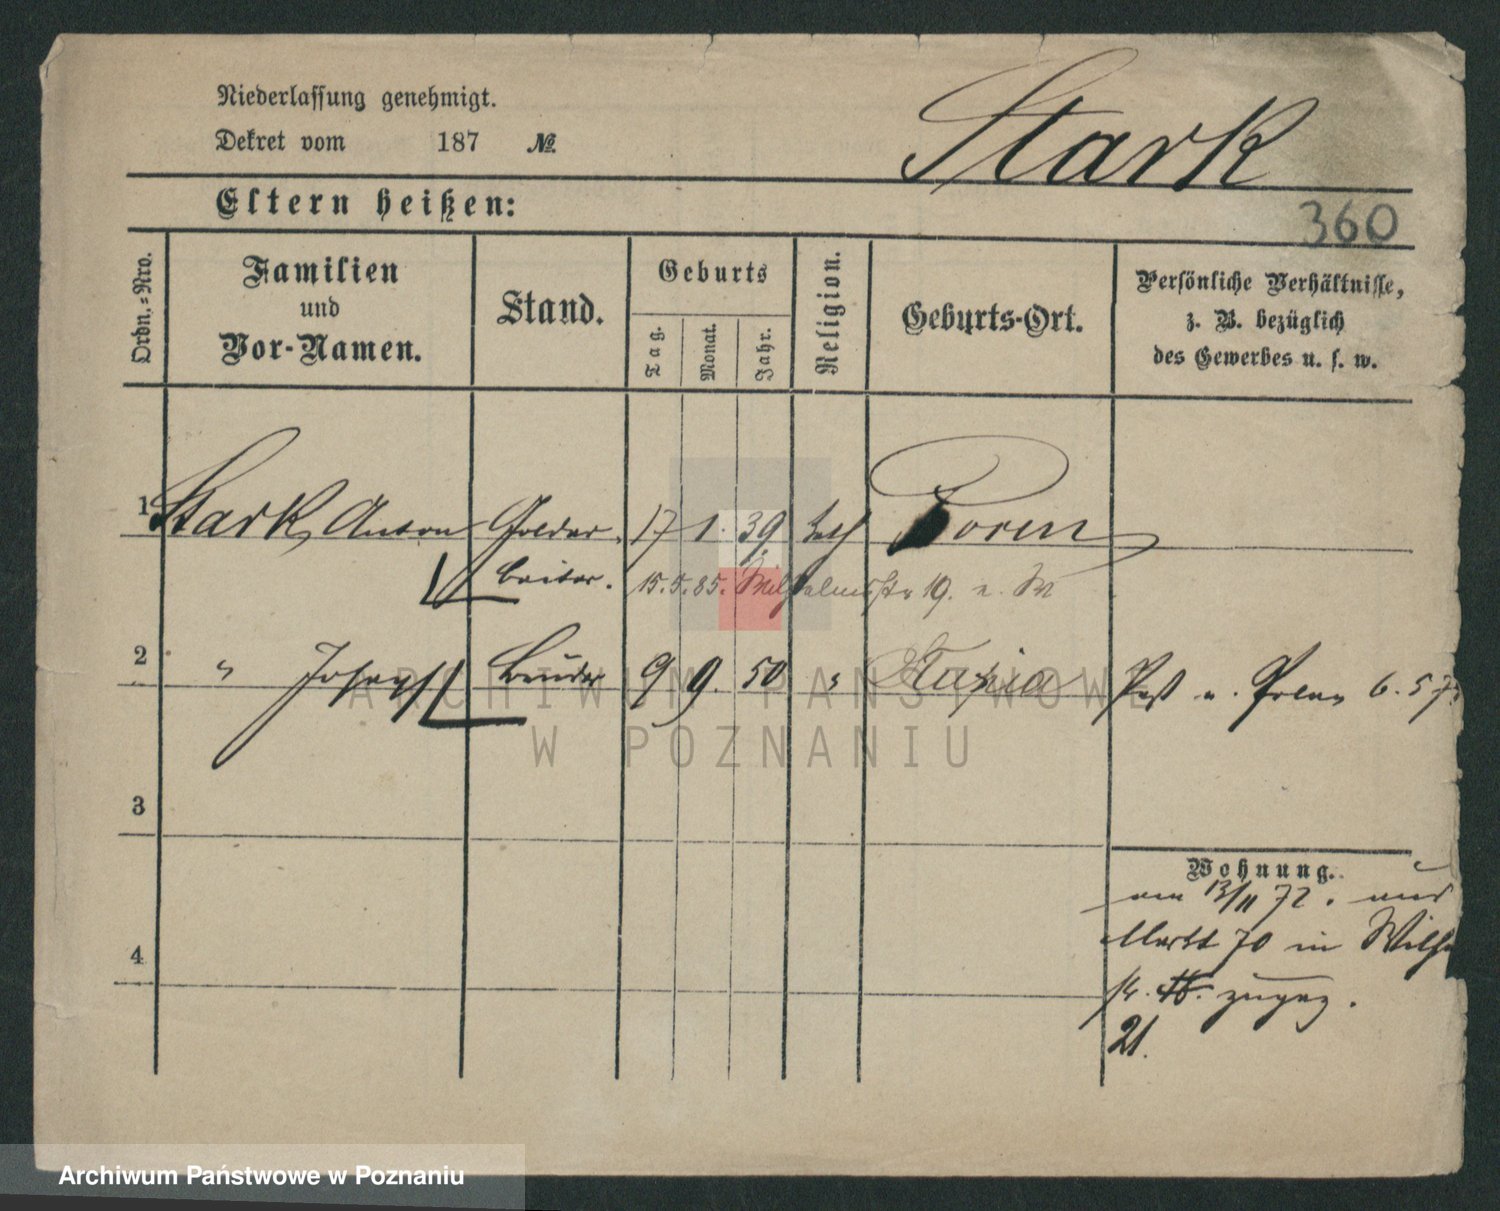 Niederlassung genehmigt.
Dekret vom 187 №.
Stark
Eltern heißen:
360
Ordn.=Nro.
Familien
und
Vor-Namen.
Stand.
Geburts
Tag.
Monat.
Jahr.
Religion.
Geburts-Ort.
Persönliche Verhältnisse,
z. B. bezüglich
des Gewerbes u. s. w.
1 Stark, Anton 17 1. 39 kath
15. 5. 85. Wilhelmsstr 19. n. W
2 " Joseph Bruder 9 9. 50 "
ARCHIWUM PAŃSTWOWE
W POZNANIU
3
Wohnung.
am 13/11 72. aus
Markt 70 in Wilh
str. zugez.
21.
4
Archiwum Państwowe w Poznaniu